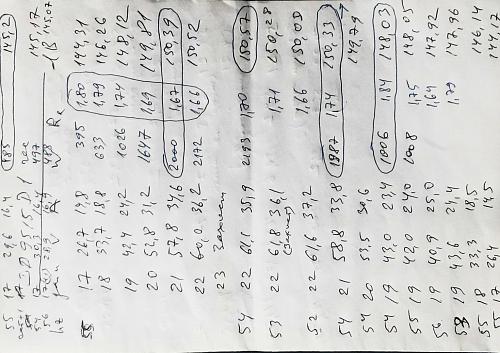 55 17 29,6 16,4 485 145,2
54 17 30,3 16,4 497 145,17
56 17(1) 29,9 488 145,07
1,7 gain V A W Re -1В
55 17 26,7 14,8 395 1,80 144,31
18 33,7 18,8 633 1,79 146,26
19 42,4 24,2 1026 1,74 148,12
20 52,8 31,2 1647 1,69 149,81
21 57,8 34,6 2000 1,67 150,39
22 60,0 36,2 2172 1,66 150,52
23
54 22 61,1 35,9 2193 1,70 150,57
53 22 61,8 36,1 1,71 150,28
52 22 61,6 37,2 1,66 150,00
54 21 58,8 33,8 1987 1,74 150,33
54 20 53,5 30,6 149,79
54 19 43,0 23,4 1006 1,84 148,03
55 19 42,0 24,0 1008 1,75 148,05
56 19 40,9 25,0 1,64 147,92
53 19 43,6 24,4 1,79 147,96
55 18 33,3 18,5 146,14
55 17 26,4 14,5